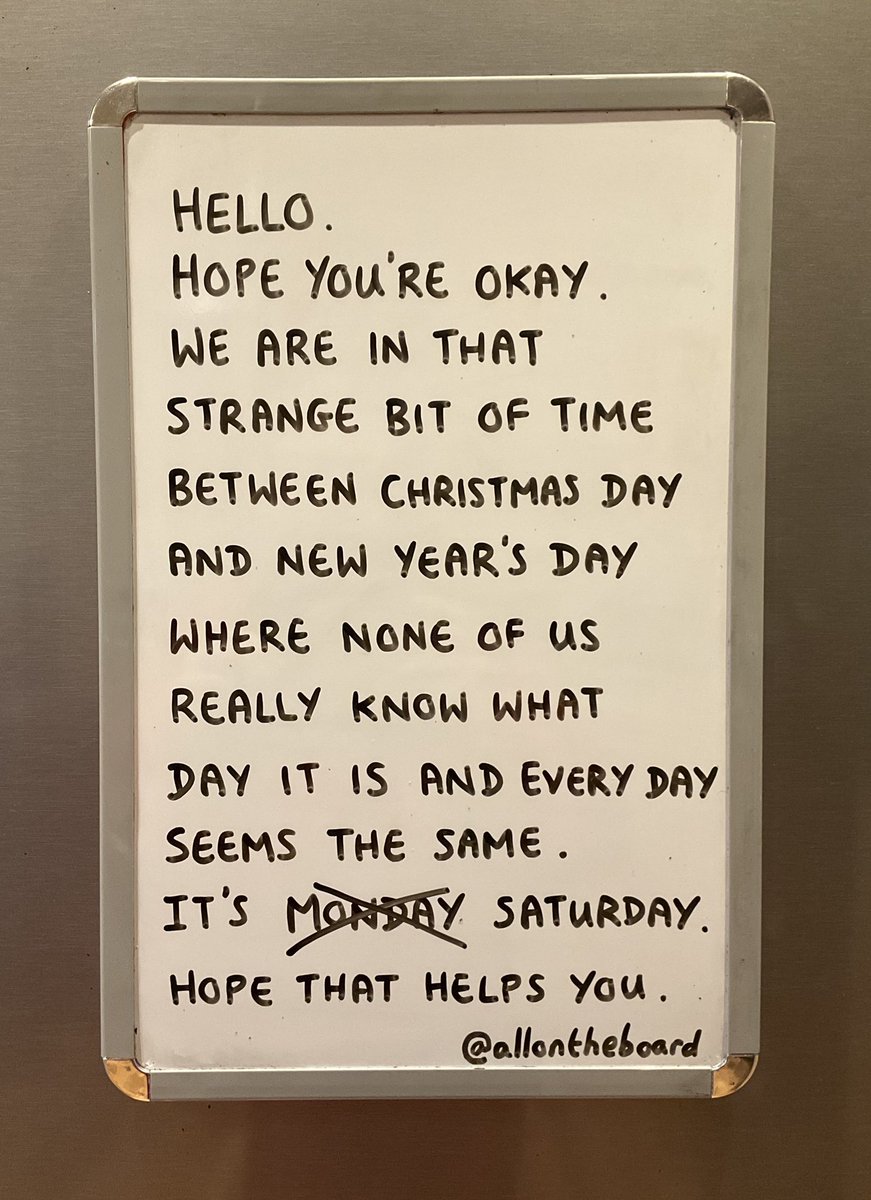 HELLO.
HOPE YOU'RE OKAY.
WE ARE IN THAT
STRANGE BIT OF TIME
BETWEEN CHRISTMAS DAY
AND NEW YEAR'S DAY
WHERE NONE OF US
REALLY KNOW WHAT
DAY IT IS AND EVERY DAY
SEEMS THE SAME.
IT'S MONDAY SATURDAY.
HOPE THAT HELPS YOU.
@allontheboard